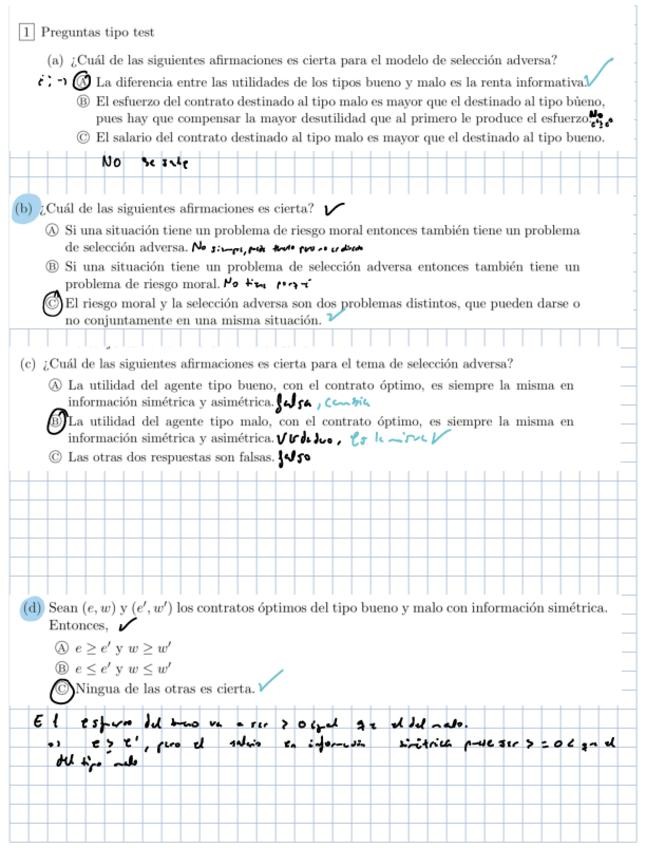 1 Preguntas tipo test
(a) ¿Cuál de las siguientes afirmaciones es cierta para el modelo de selección adversa?
Ⓐ La diferencia entre las utilidades de los tipos bueno y malo es la renta informativa.
Ⓑ El esfuerzo del contrato destinado al tipo malo es mayor que el destinado al tipo bueno,
pues hay que compensar la mayor desutilidad que al primero le produce el esfuerzo. No
Ⓒ El salario del contrato destinado al tipo malo es mayor que el destinado al tipo bueno.
No se sabe
(b) ¿Cuál de las siguientes afirmaciones es cierta? ✓
Ⓐ Si una situación tiene un problema de riesgo moral entonces también tiene un problema
de selección adversa. No
Ⓑ Si una situación tiene un problema de selección adversa entonces también tiene un
problema de riesgo moral. No tiene
Ⓒ El riesgo moral y la selección adversa son dos problemas distintos, que pueden darse o
no conjuntamente en una misma situación.
(c) ¿Cuál de las siguientes afirmaciones es cierta para el tema de selección adversa?
Ⓐ La utilidad del agente tipo bueno, con el contrato óptimo, es siempre la misma en
información simétrica y asimétrica. falsa, cambia
Ⓑ La utilidad del agente tipo malo, con el contrato óptimo, es siempre la misma en
información simétrica y asimétrica. Es la misma ✓
Ⓒ Las otras dos respuestas son falsas. falso
(d) Sean (e, w) y (e′, w′) los contratos óptimos del tipo bueno y malo con información simétrica.
Entonces, ✓
Ⓐ e ≥ e′ y w ≥ w′
Ⓑ e ≤ e′ y w ≤ w′
Ⓒ Ningua de las otras es cierta. ✓
El esfuerzo del bueno va a ser > o igual que el del malo.
e ≥ e′, pero el salario en información simétrica puede ser > = o < que el
del tipo malo